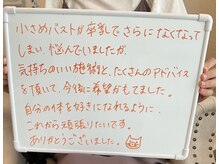 小さめバストが卒乳でさらになくなって
しまい、悩んでいましたが、
気持ちのいい施術と、たくさんのアドバイス
を頂いて、今後に希望がもてました。
自分の体を好きになれるように、
これから頑張りたいです。
ありがとうございました。